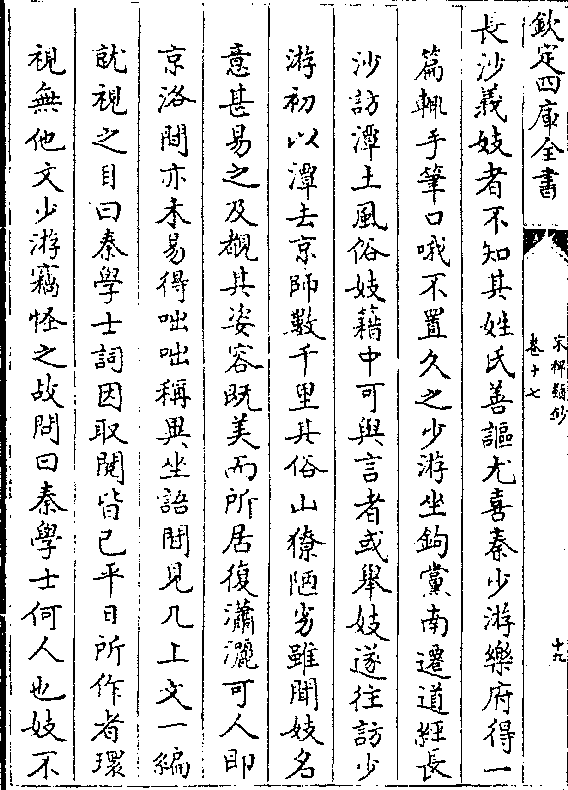 欽定四庫全書
宋稗類鈔
卷十七
十九
長沙義妓者不知其姓氏善謳尤喜秦少游樂府得一
篇輒手筆口哦不置久之少游坐鉤黨南遷道經長
沙訪潭土風俗妓籍中可與言者或舉妓遂往訪少
游初以潭去京師數千里其俗山獠陋劣雖聞妓名
意甚易之及覩其姿容既美而所居復瀟灑可人即
京洛間亦未易得咄咄稱異坐語間見几上文一編
就視之目曰秦學士詞因取閱皆已平日所作者環
視無他文少游竊怪之故問曰秦學士何人也妓不